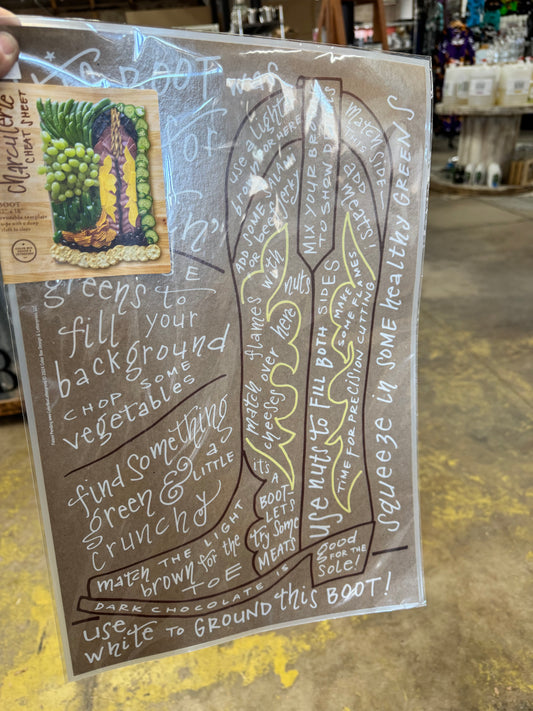 Charcuterie
CHEAT SHEET
BOOT
BOOT
for
greens to
fill your
background
CHOP SOME
vegetables
find something
green & a
LITTLE
crunchy
match THE LIGHT
brown for the
TOE
DARK CHOCOLATE IS
good
FOR THE
sole!
use
white TO GROUND this BOOT!
use a light
brown
ADD SOME
or beef jerky
match flames with nuts
cheeses over here
it's
A
BOOT-
LET'S
try some
MEATS
MIX YOUR
TO SHOW
use NUTS to FILL BOTH SIDES
match
SIDE-
ADD
meats!
MAKE
SOME FLAMES
TIME FOR PRECISION CUTTING
squeeze in some healthy greens